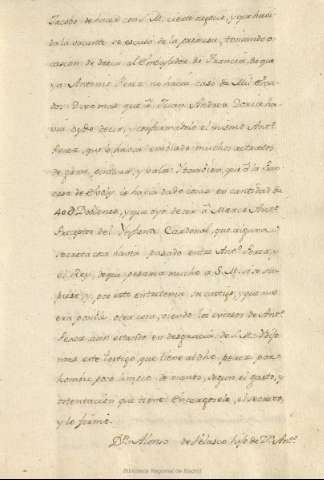 Jacobo de hacer con S. M. cierto asiento, y que havi
da la vacante se escusó de la promesa, tomando o
casion de decir al Embajador de Francia, de que
ya Antonio Perez no hacía caso de Mil Duca
dos. Dijo mas que á Juan Andrea Doria ha
via oydo decir, y confirmadolo el mismo Antº
Perez que le havia embiado muchos retratos
de y que á la Prin
cesa de Eboly la havia dado cosas en cantidad de
40 y que oyó decir á Marco Antº
Preceptor del Infante Cardenal, que alguna
secreta cosa havia pasado entre Antº Perez y
el Rey, de que pesaria mucho á S. M. si se su
piese, y por esto entretenia su castigo, y que no e
ra posible otra cosa, viendo los excesos de Antº
Perez aun estando en desgracia de S. M. Dijo
mas este testigo, que tiene al dho Perez por
hombre poco limpio de manos, segun el gasto, y
ostentacion que tiene. Encargosele el secreto,
y lo firmó.
Dn. Alonso de Velasco hijo de Dn. Antº
Biblioteca Regional de Madrid